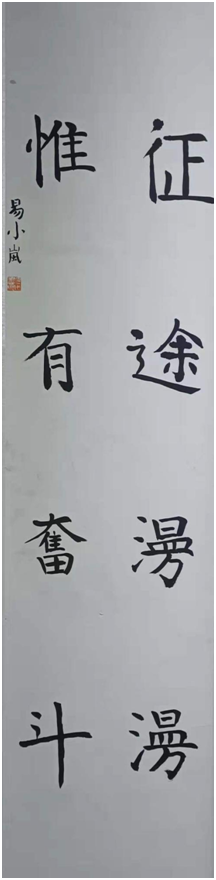 征途漫漫
惟有奮斗
易小嵐